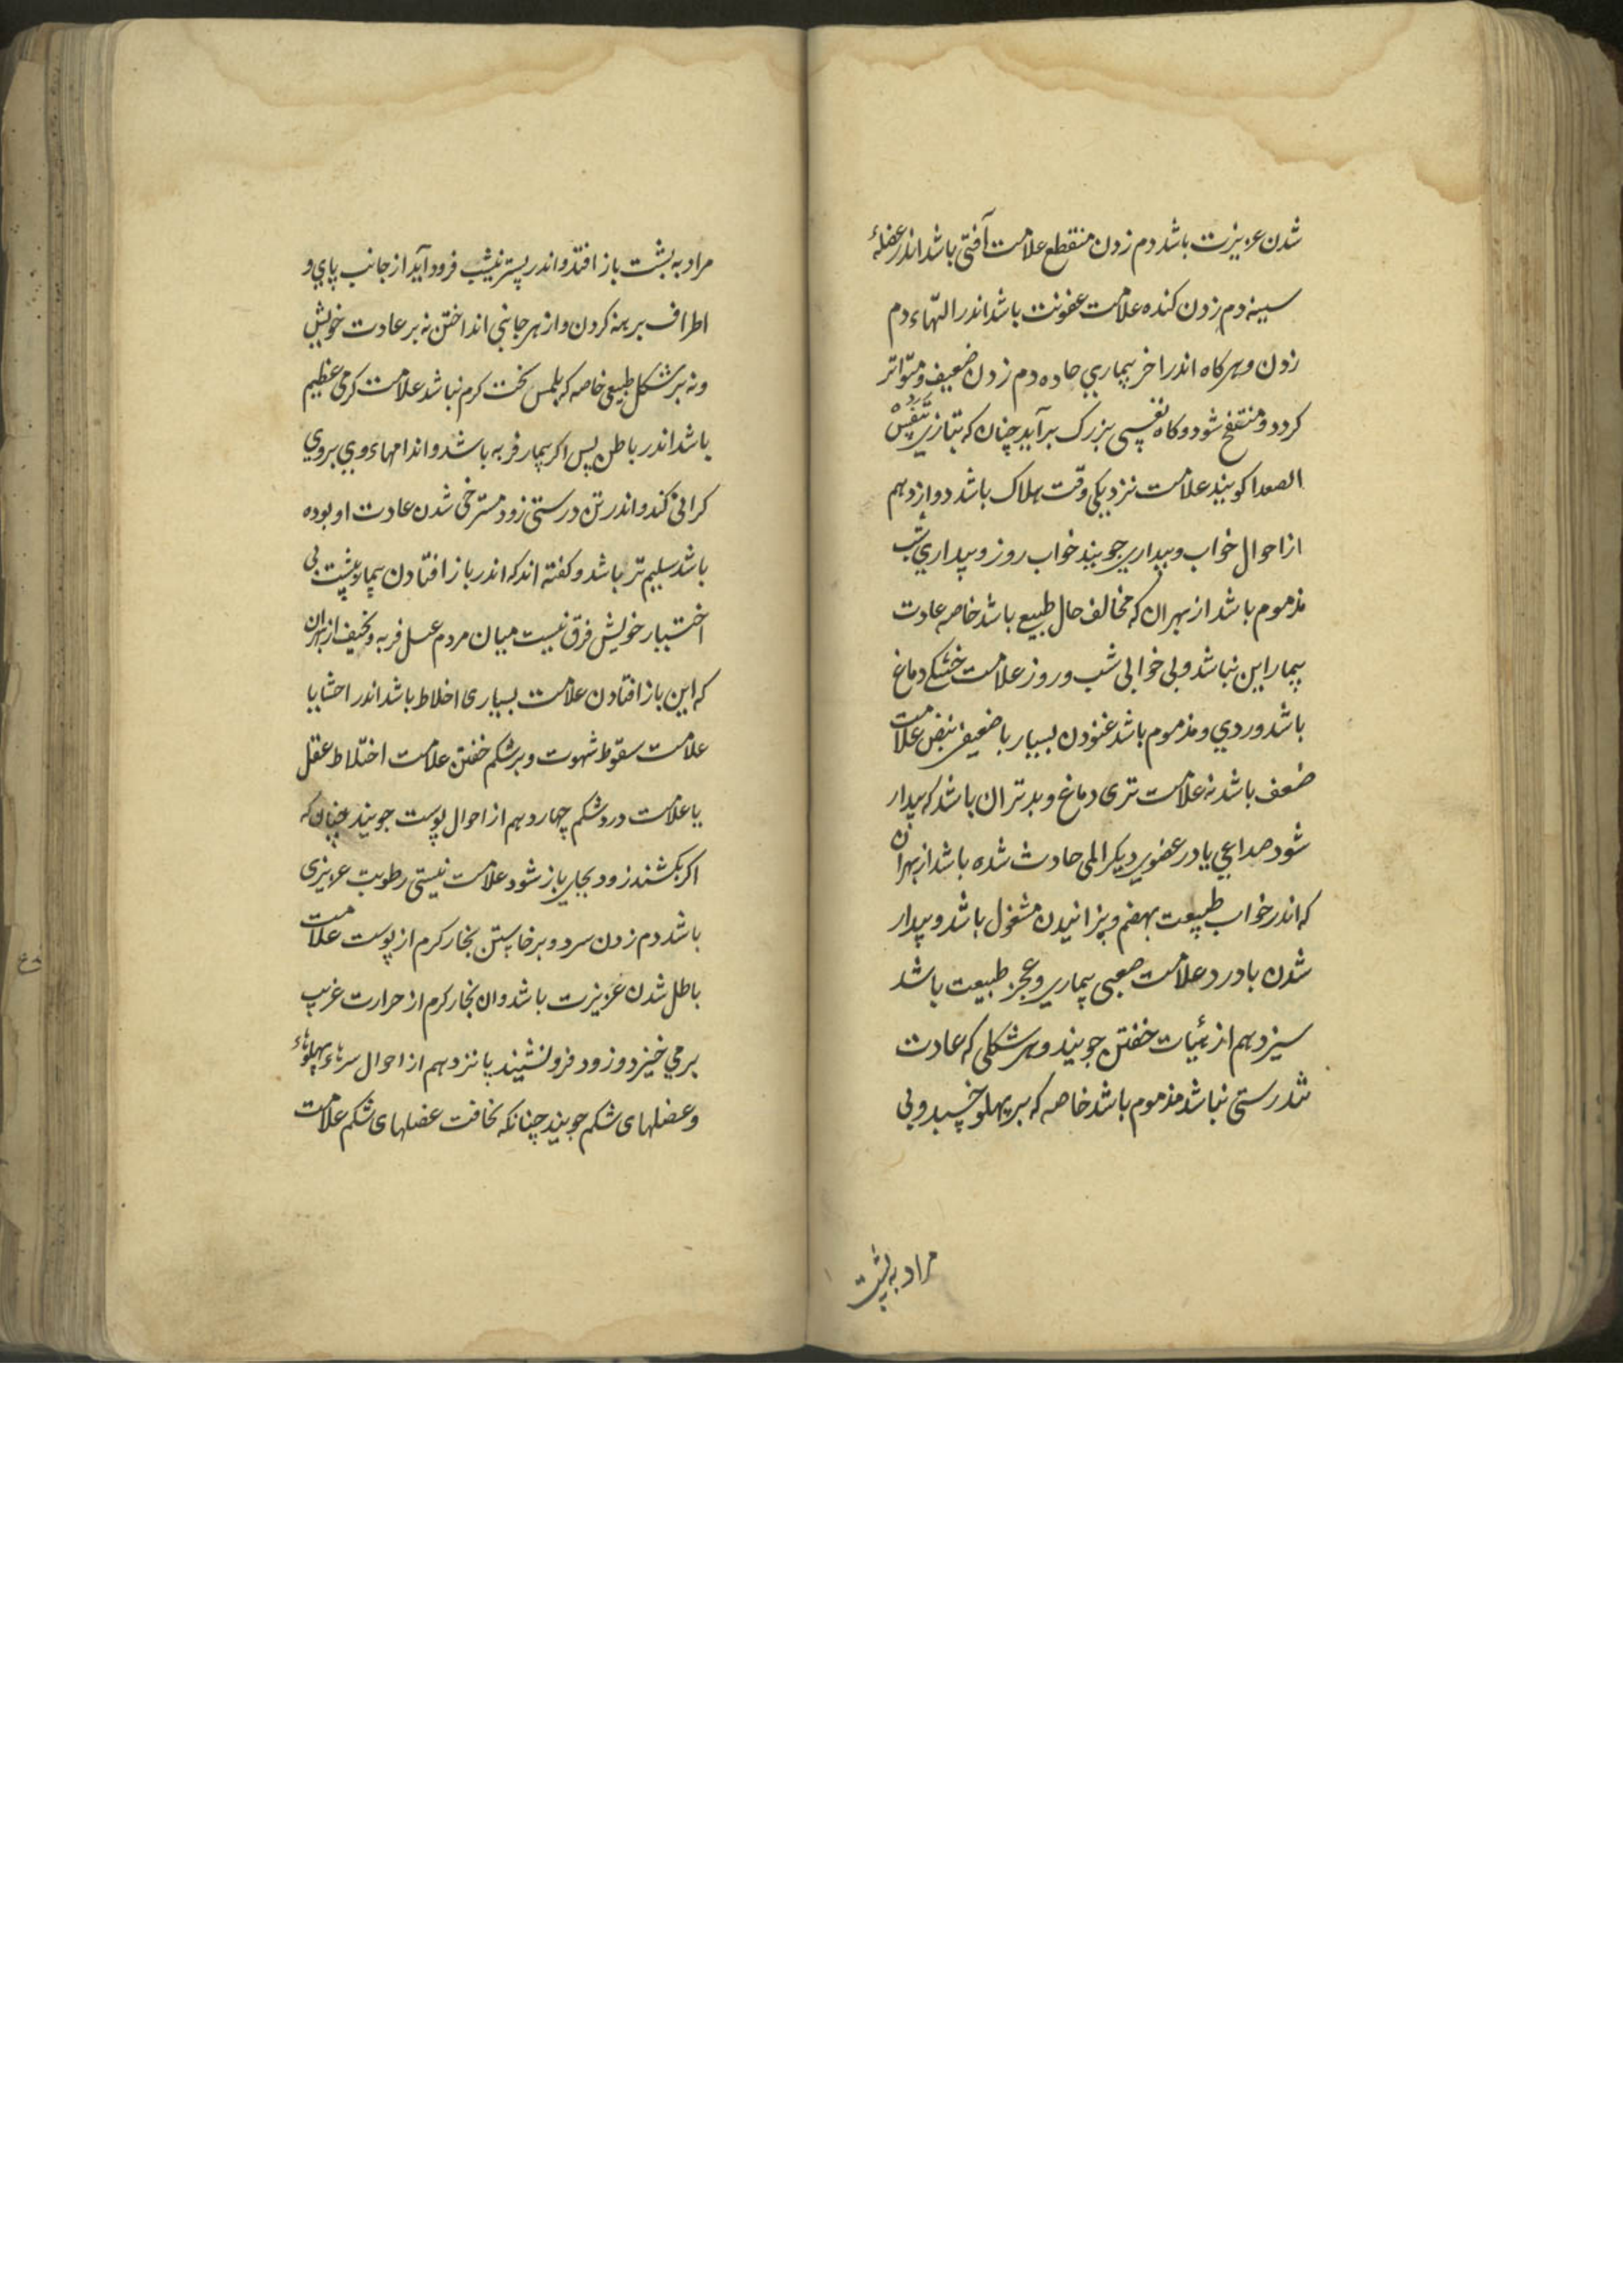 شدن عزیزت باشد دم زدن منقطع علامت آفتی باشد اندر عضلهٔ
سینه دم زدن کنده علامت عفونت باشد اندر التهاء دم
زدن وهرکاه اندر اخر بیماری حاده دم زدن ضعیف ومتواتر
کردد ومنتفخ شود وکاه نفسی بزرک برآید چنان که بتازی تنفس
الصعدا کویند علامت نزدیکی وقت هلاک باشد دوازدهم
از احوال خواب وبیداری جویند خواب روز وبیداری شب
مذموم باشد از بهر ان که مخالف حال طبیع باشد خاصه عادت
بیمار این نباشد وبی خوابی شب وروز علامت خشکے دماغ
باشد وردی ومذموم باشد غنودن بسیار با ضعیفی نبض علامت
ضعف باشد نه علامت تری دماغ وبدتر ان باشد که بیدار
شود صداعی یا در عضوی دیکر المی حادث شده باشد از بهر ان
که اندر خواب طبیعت بهضم وبزانیدن مشغول باشد وبیدار
شدن با درد علامت صعبی بیماری وعجز طبیعت باشد
سیزدهم از هیٔات خفتن جویند وهر شکلی که عادت
تندرستی نباشد مذموم باشد خاصه که بر پهلو خسبد وبی
مراد به پشت
مراد به پشت باز افتد واندر بستر نشیب فرود آید از جانب پای و
اطراف برهنه کردن واز هر جانبی انداختن نه بر عادت خویش
ونه بر شکل طبیعی خاصه که بلمس سخت کرم نباشد علامت کرمی عظیم
باشد اندر باطن پس اکر بیمار فربه باشد واندامهاء وی بروی
کرانی کند واندر تن درستی زود مسترخی شدن عادت او بوده
باشد سلیم تر باشد وکفته اند که اندر باز افتادن بیمار به پشت بی
اختیار خویش فرق نیست میان مردم عسل فربه ونحیف از بهر ان
که این باز افتادن علامت بسیاری اخلاط باشد اندر احشا یا
علامت سقوط شهوت وبر شکم خفتن علامت اختلاط عقل
یا علامت درد شکم چهاردهم از احوال پوست جویند چنان که
اکر بکشند زود بجای باز شود علامت نیستی رطوبت عزیزی
باشد دم زدن سرد وبرخاستن بخار کرم از پوست علامت
باطل شدن عزیزت باشد وان بخار کرم از حرارت غریب
برمی خیزد وزود فرو نشیند پانزدهم از احوال سرهاء پهلوهاء
وعضلهای شکم جویند چنانکه نحافت عضلهای شکم علامت